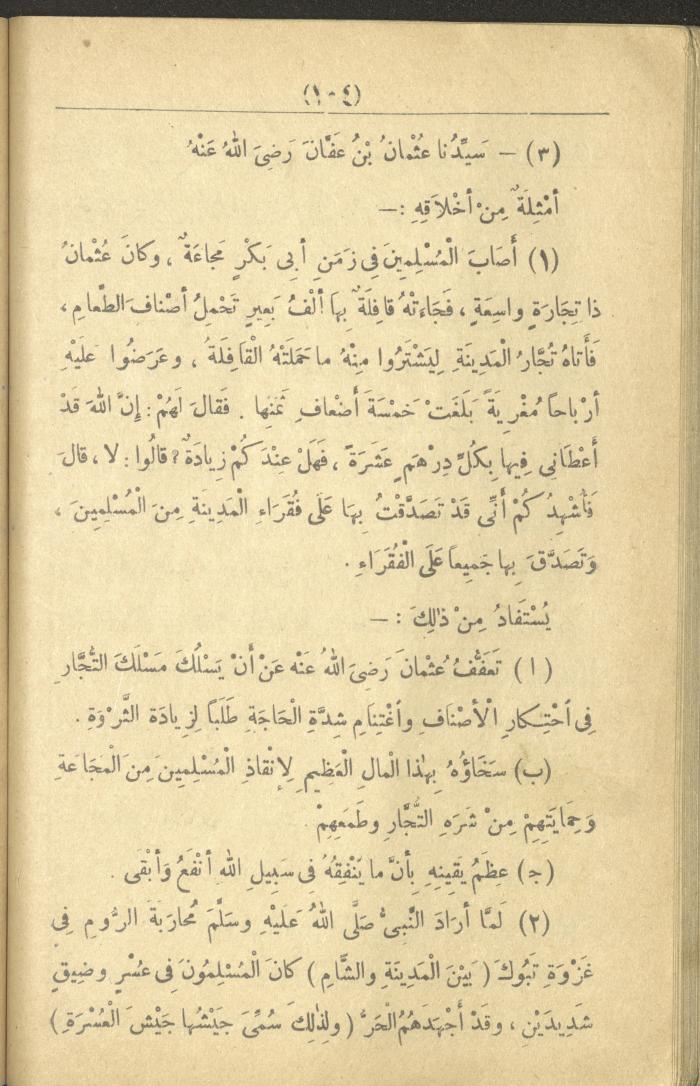 (١٠٤)
(٣) — سَيِّدُنا عُثْمانُ بْنُ عَفَّانَ رَضِىَ اللهُ عَنْهُ
أمْثِلَةٌ مِنْ أخْلَاقِهِ :—
(١) أَصَابَ الْمُسْلِمِينَ فِى زَمَنِ أبِى بَكْرٍ مَجاعَةٌ ، وكانَ عُثْمانُ
ذا تِجَارَةٍ واسِعَةٍ ، فَجَاءَتْهُ قافِلَةٌ بِهَا ألْفُ بَعِيرٍ تَحْمِلُ أصْنافَ الطَّعامِ ،
فَأَتاهُ تُجَّارُ الْمَدِينَةِ لِيَشْتَرُوا مِنْهُ ما حَمَلَتْهُ الْقَافِلَةُ ، وعَرَضُوا عَلَيْهِ
أرْباحاً مُغْرِيَةً بَلَغَتْ خَمْسَةَ أَضْعافِ ثَمَنِها . فَقالَ لَهُمْ : إنَّ اللهَ قَدْ
أَعْطَانِى فِيها بِكُلِّ دِرْهَمٍ عَشَرَةً ، فَهَلْ عِنْدَكُمْ زِيادَةٌ ؟ قالُوا : لا ، قالَ
فَأُشْهِدُكُمْ أَنِّى قَدْ تَصَدَّقْتُ بِهَا عَلَى فُقَرَاءِ الْمَدِينَةِ مِنَ الْمُسْلِمِينَ ،
وَتَصَدَّقَ بِها جَمِيعاً عَلَى الْفُقَرَاءِ .
يُسْتَفادُ مِنْ ذٰلِكَ : —
(ا) تَعَفُّفُ عُثْمانَ رَضِىَ اللهُ عَنْه عَنْ أَنْ يَسْلُكَ مَسْلَكَ التُّجَّارِ
فِى احْتِكارِ الْأصْنافِ واغْتِنامِ شِدَّةِ الْحَاجَةِ طَلَباً لِزِيادَة الثَّرْوَةِ .
(ب) سَخَاؤُهُ بِهٰذا الْمالِ الْعَظِيمِ لِإنْقاذِ الْمُسْلِمِينَ مِنَ الْمَجَاعَةِ
وَحِمَايَتِهِمْ مِنْ شَرَهِ التُّجَّارِ وطَمَعِهِمْ
(ج) عِظَمُ يَقِينِهِ بِأَنَّ ما يُنْفِقُهُ فِى سَبِيلِ اللهِ أنْفَعُ وَأَبْقَى .
(٢) لَمَّا أرَادَ النَّبِىُّ صَلَّى اللهُ عَلَيْهِ وسَلَّمَ مُحارَبَةَ الرُّومِ فِى
غَزْوَةِ تَبُوكَ (بَيْنَ الْمَدِينَةِ والشَّامِ) كانَ الْمُسْلِمُونَ فِى عُسْرٍ وضِيقٍ
شَدِيدَيْنِ ، وقَدْ أَجْهَدَهُمُ الْحَرُّ (ولِذٰلِكَ سُمِّىَ جَيْشُها جَيْشَ الْعُسْرَةِ)